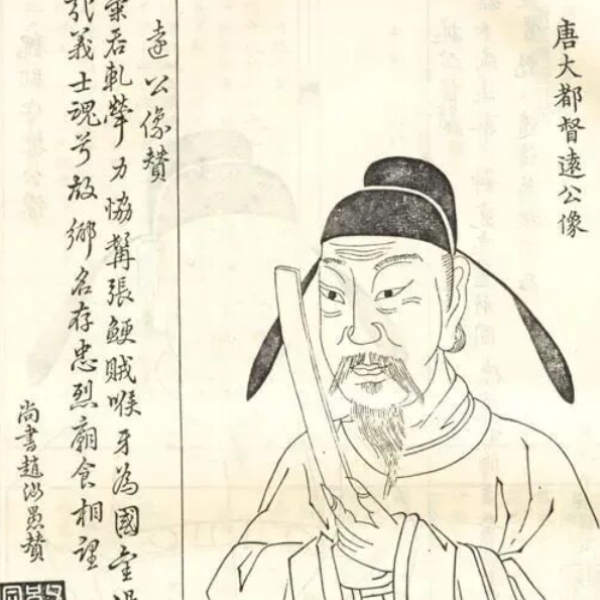 唐大都督遠公像
遠公像贊
若軋犖力協張鯁賊喉牙為國
義士魂兮故鄉名存忠烈廟食相望
尚書趙汝愚贊